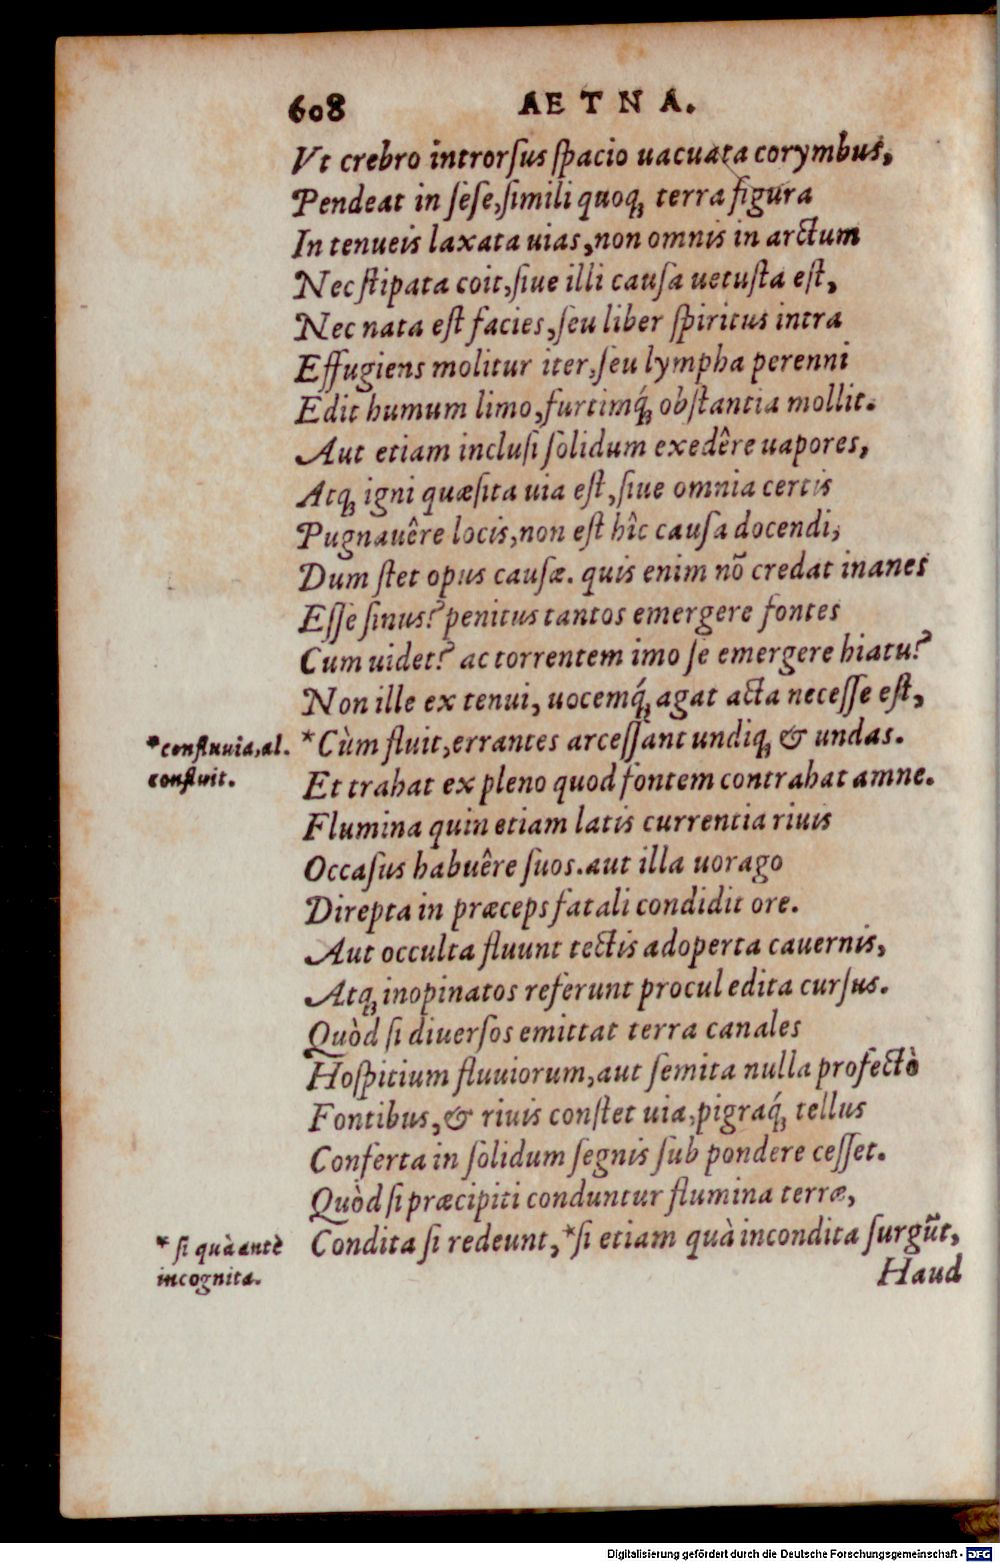 608 AETNA.
Vt crebro introrſus ſpacio uacuata corymbus,
Pendeat in ſeſe, ſimili quoq; terra figura
In tenueis laxata uias, non omnis in arctum
Nec ſtipata coit, ſiue illi cauſa uetuſta eſt,
Nec nata eſt facies, ſeu liber ſpiritus intra
Effugiens molitur iter, ſeu lympha perenni
Edit humum limo, furtimq́; obſtantia mollit.
Aut etiam incluſi ſolidum exedêre uapores,
Atq; igni quæſita uia eſt, ſiue omnia certis
Pugnauêre locis, non eſt hîc cauſa docendi,
Dum ſtet opus cauſæ. quis enim nõ credat inanes
Eſſe ſinus? penitus tantos emergere fontes
Cum uidet? ac torrentem imo ſe emergere hiatu?
Non ille ex tenui, uocemq́; agat acta neceſſe eſt,
*confluuia, al.
confluit.
*Cùm fluit, errantes arceſſant undiq; & undas.
Et trahat ex pleno quod fontem contrahat amne.
Flumina quin etiam latis currentia riuis
Occaſus habuêre ſuos. aut illa uorago
Direpta in præceps fatali condidit ore.
Aut occulta fluunt tectis adoperta cauernis,
Atq; inopinatos referunt procul edita curſus.
Quòd ſi diuerſos emittat terra canales
Hoſpitium fluuiorum, aut ſemita nulla profectò
Fontibus, & riuis conſtet uia, pigraq́; tellus
Conferta in ſolidum ſegnis ſub pondere ceſſet.
Quòd ſi præcipiti conduntur flumina terræ,
* ſi quà antè
incognita.
Condita ſi redeunt, *ſi etiam quà incondita ſurgũt,
Haud
Digitalisierung gefördert durch die Deutsche Forschungsgemeinschaft - DFG